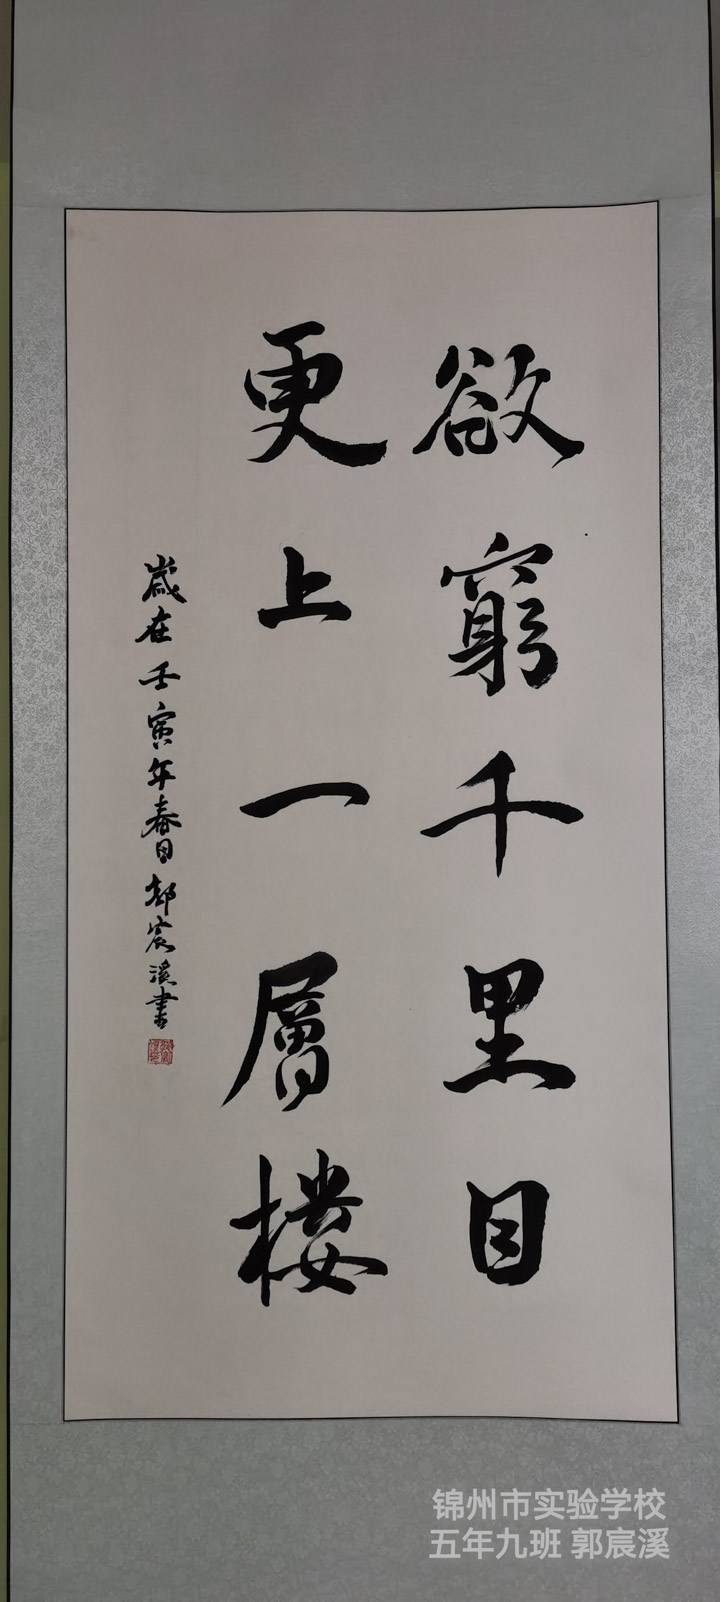 欲窮千里目
更上一層樓
歲在壬寅年春日郭宸溪書
锦州市实验学校
五年九班 郭宸溪